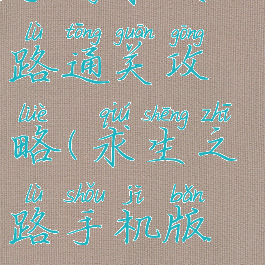 lù tōng guān gōng
路通关攻
lüè qiú shēng zhī
略(求生之
lù shǒu jī bǎn
路手机版